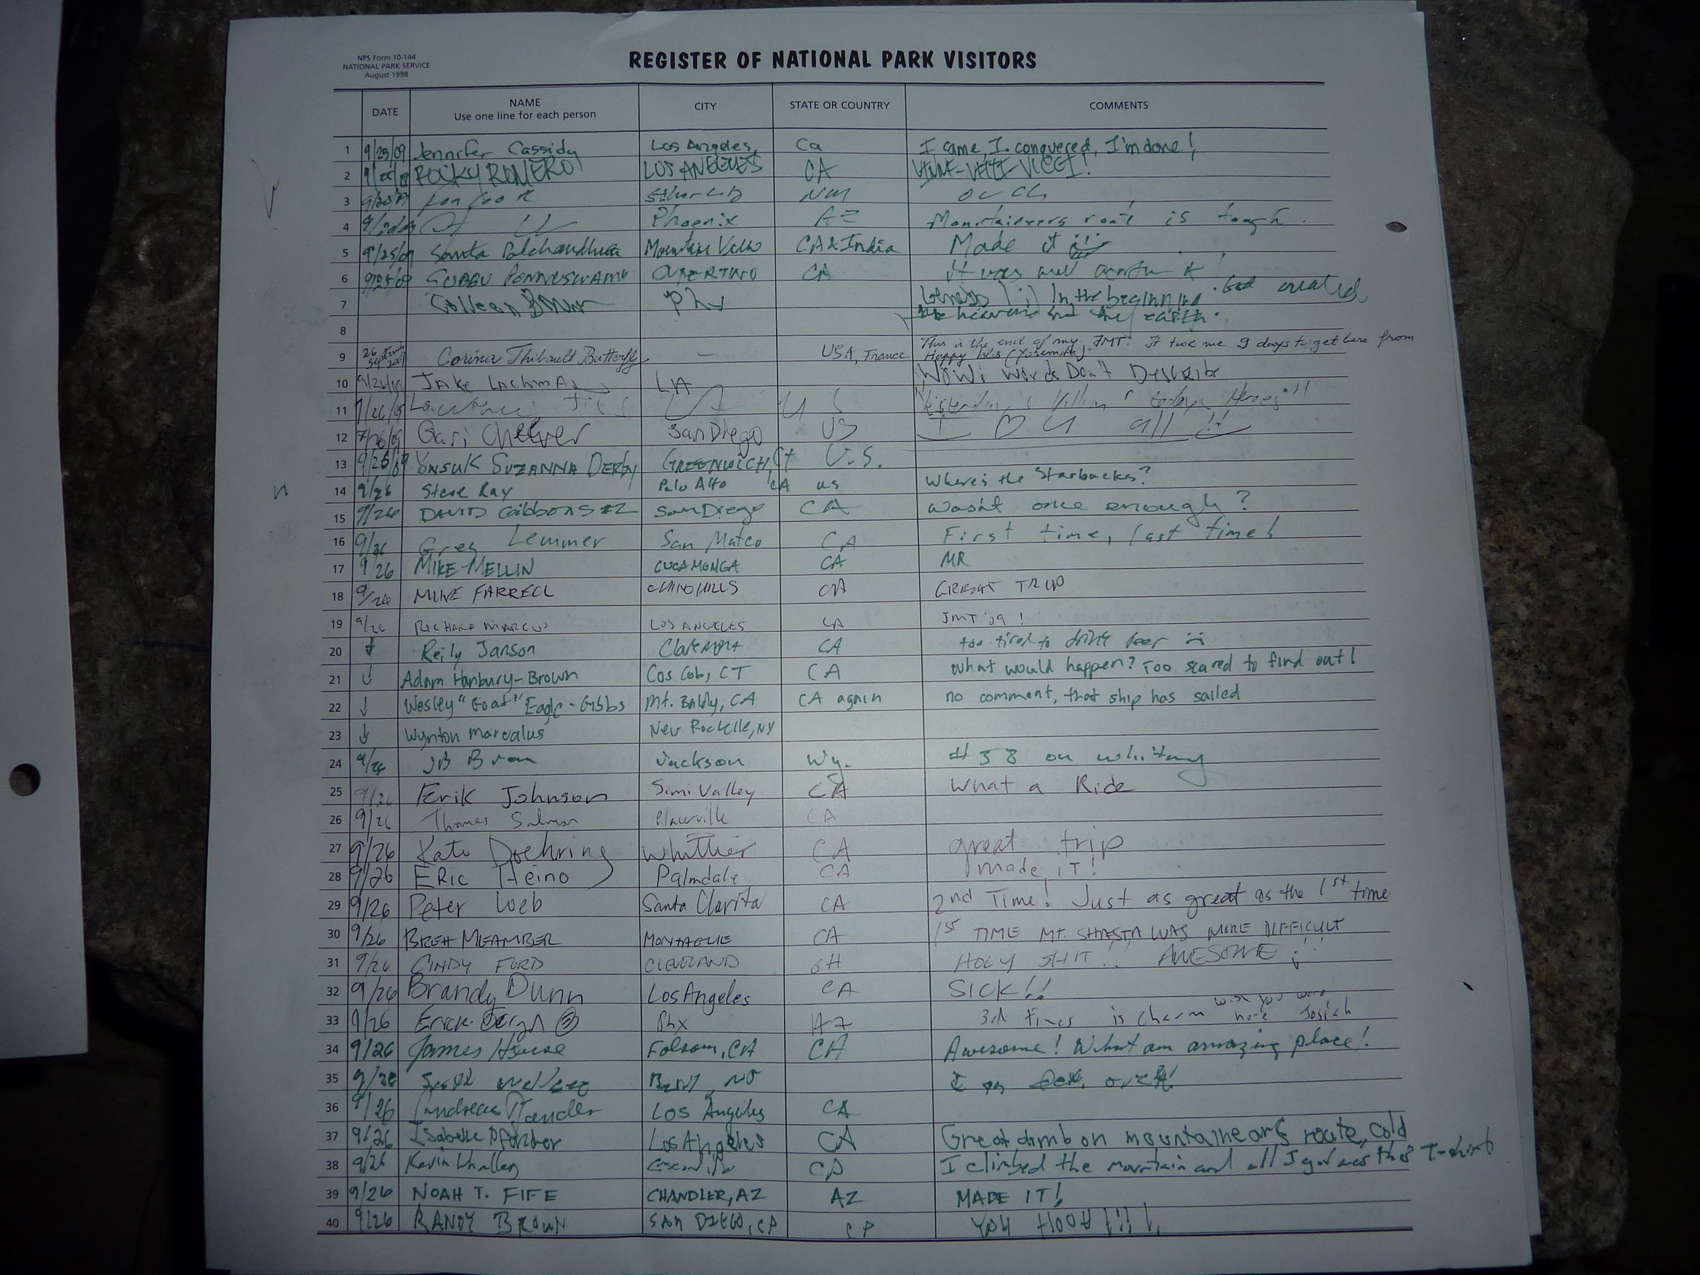 NPS Form 10-144
NATIONAL PARK SERVICE
August 1998
REGISTER OF NATIONAL PARK VISITORS
DATE NAME CITY STATE OR COUNTRY COMMENTS
Use one line for each person
1 9/25/09 Jennifer Cassidy Los Angeles, Ca I came I conquered, I'm done!
2 ROCKY ROMERO LOS ANGELES CA
3 NM OUCH
4 Phoenix AZ Mountaineers route is tough.
5 9/25/09 Mountain View CA & India Made it
6 9/25/09 CUPERTINO CA it was well worth it!
7 Colleen Phx Genesis 1:1 In the beginning God created
8 the heavens and the earth.
9 26 Corina Thibault Butterfly — USA, France This is the end of my JMT. It took me 9 days to get here from
Happy Isles (Yosemite).
10 9/26/09 JAKE LA WOW! Words Don't Describe
11
12 Gari Cheever San Diego US I ♡ U all!!
13 9/25/09 YONSUK SUZANNA DERBY GREENWICH, Ct U.S.
14 9/26 Steve Ray Palo Alto CA US Where's the Starbucks?
15 9/26 DAVID Gibbons #2 San Diego CA wasn't once enough?
16 9/26 Greg Lemmer San Mateo CA First time, last time!
17 9/26 MIKE MELLIN CUCAMONGA CA MR
18 9/26 MIKE FARRELL CHINO HILLS CA GREAT TRIP
19 9/26 RICHARD MARCUS LOS ANGELES CA JMT '09!
20 ↓ Reily Janson Claremont CA too tired to drink beer
21 ↓ Adam Hanbury-Brown Cos Cob, CT CA What would happen? Too scared to find out!
22 ↓ Wesley "Goat" Eagle-Gibbs Mt. Baldy, CA CA again no comment, that ship has sailed
23 ↓ Wynton marsalus New Rochelle, NY
24 9/26 JB Jackson Wy. #58 on whitney
25 9/26 Erik Johnson Simi Valley CA What a Ride
26 9/26 Thomas Salmon CA
27 9/26 Kate Doehring Whittier CA great trip
28 9/26 Eric Heino Palmdale CA I made IT!
29 9/26 Peter Loeb Santa Clarita CA 2nd Time! Just as great as the 1st time
30 9/26 MEAMBER MONTAGUE CA 1ST TIME MT. SHASTA WAS MORE DIFFICULT
31 9/26 CINDY FORD CLEVELAND OH HOLY SHIT!! AWESOME!
32 9/26 Brandy Dunn Los Angeles CA SICK!!
33 9/26 Erick Phx AZ 3rd times is charm wish you were here Josiah
34 9/26 James House Folsom, CA CA Awesome! What an amazing place!
35 9/26
36 9/26 Andreas Los Angeles CA
37 9/26 Isabelle Los Angeles CA Great climb on mountaineers route, cold
38 9/26 Kevin Whalley CA I climbed the mountain and all I got was this T-shirt
39 9/26 NOAH T. FIFE CHANDLER, AZ AZ MADE IT!
40 9/26 RANDY BROWN SAN DIEGO, CA CA